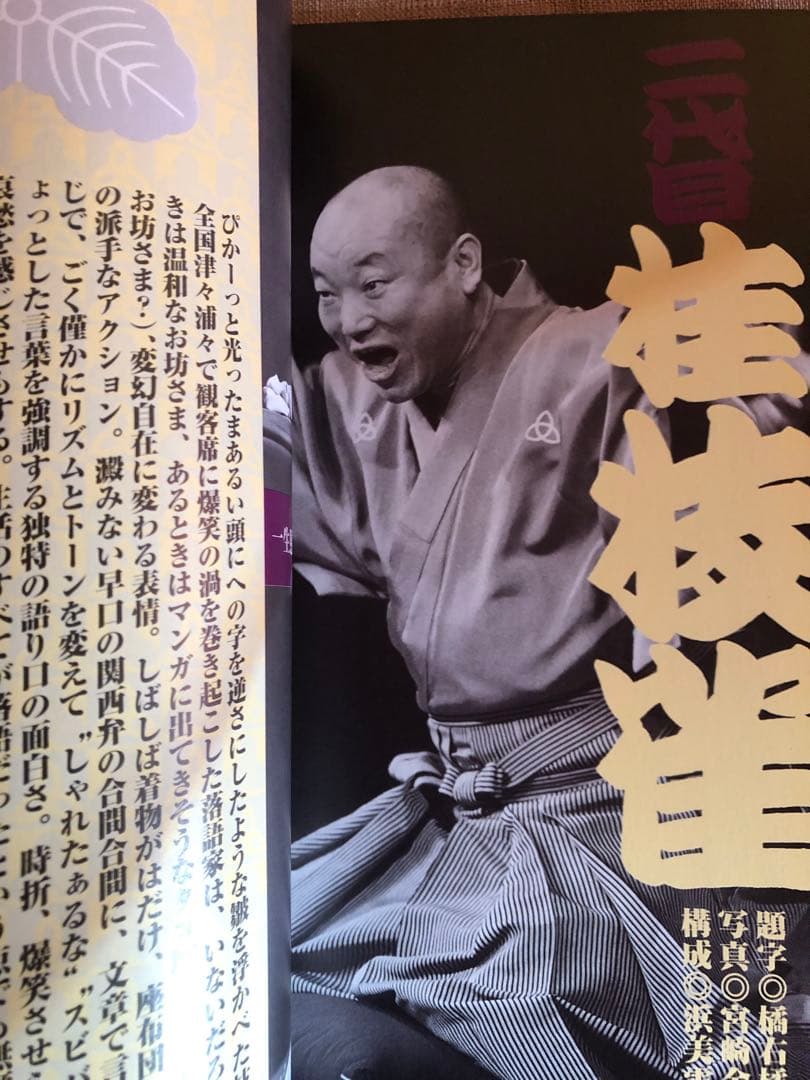 二代目
桂枝雀
題字◎橘右
写真◎宮崎金
構成◎浜美
一生
ぴかーっと光ったまあるい頭にへの字を逆さにしたような皺を浮かべた
全国津々浦々で観客席に爆笑の渦を巻き起こした落語家は、いないだろ
きは温和なお坊さま、あるときはマンガに出てきそうな
お坊さま?)、変幻自在に変わる表情。しばしば着物がはだけ、座布団
の派手なアクション。澱みない早口の関西弁の合間合間に、文章で言
じで、ごく僅かにリズムとトーンを変えて〝しゃれたぁるな〟〝スビバ
ょっとした言葉を強調する独特の語り口の面白さ。時折、爆笑させ
哀愁を感じさせもする。生活のすべてが落語だったという点でも